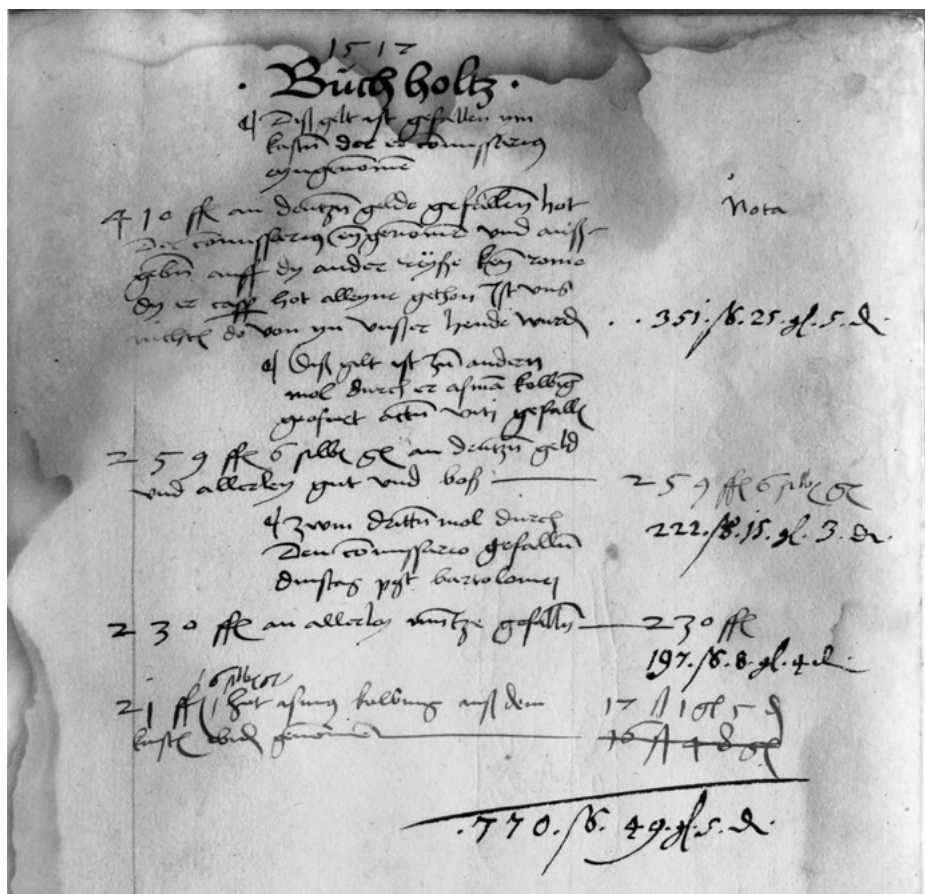 1517
· Buchholtz ·
Diß gelt ist gefallen ym
kastn der er comissarius
eyngenomē
410 fl an deutzn gelde gefallen hot
Der comissarius eyngenomē vnd auss
gebn auff dy ander reyße ken rome
dy er hot alleyne gethon Ist vns
nichts do von yn vnsser hende wurdn
Nota
. . 351 . ß . 25 . gl . 5 . d
Diß gelt ist zū andern
mol durch er asmā kolbig
geofnet viti gefalln
259 fl 6 silbr gl an deutzn geld
vnd allerley gut vnd boß — 259 fl 6 silbr gl
222 . ß . 15 . gl . 3 . d
zwm drittn mol durch
Den comissario gefalln
dinstag pgt bartolomej
230 fl an allerley mūtze gefalln — 230 fl
197 . ß . 8 . gl . 4 d
21 fl hat asmus kolbing auß dem
17 ß 1 gl 5 d
kastn genōmen — 16 ß 48 gl
. 770 . ß . 49 . gl . 5 . d .